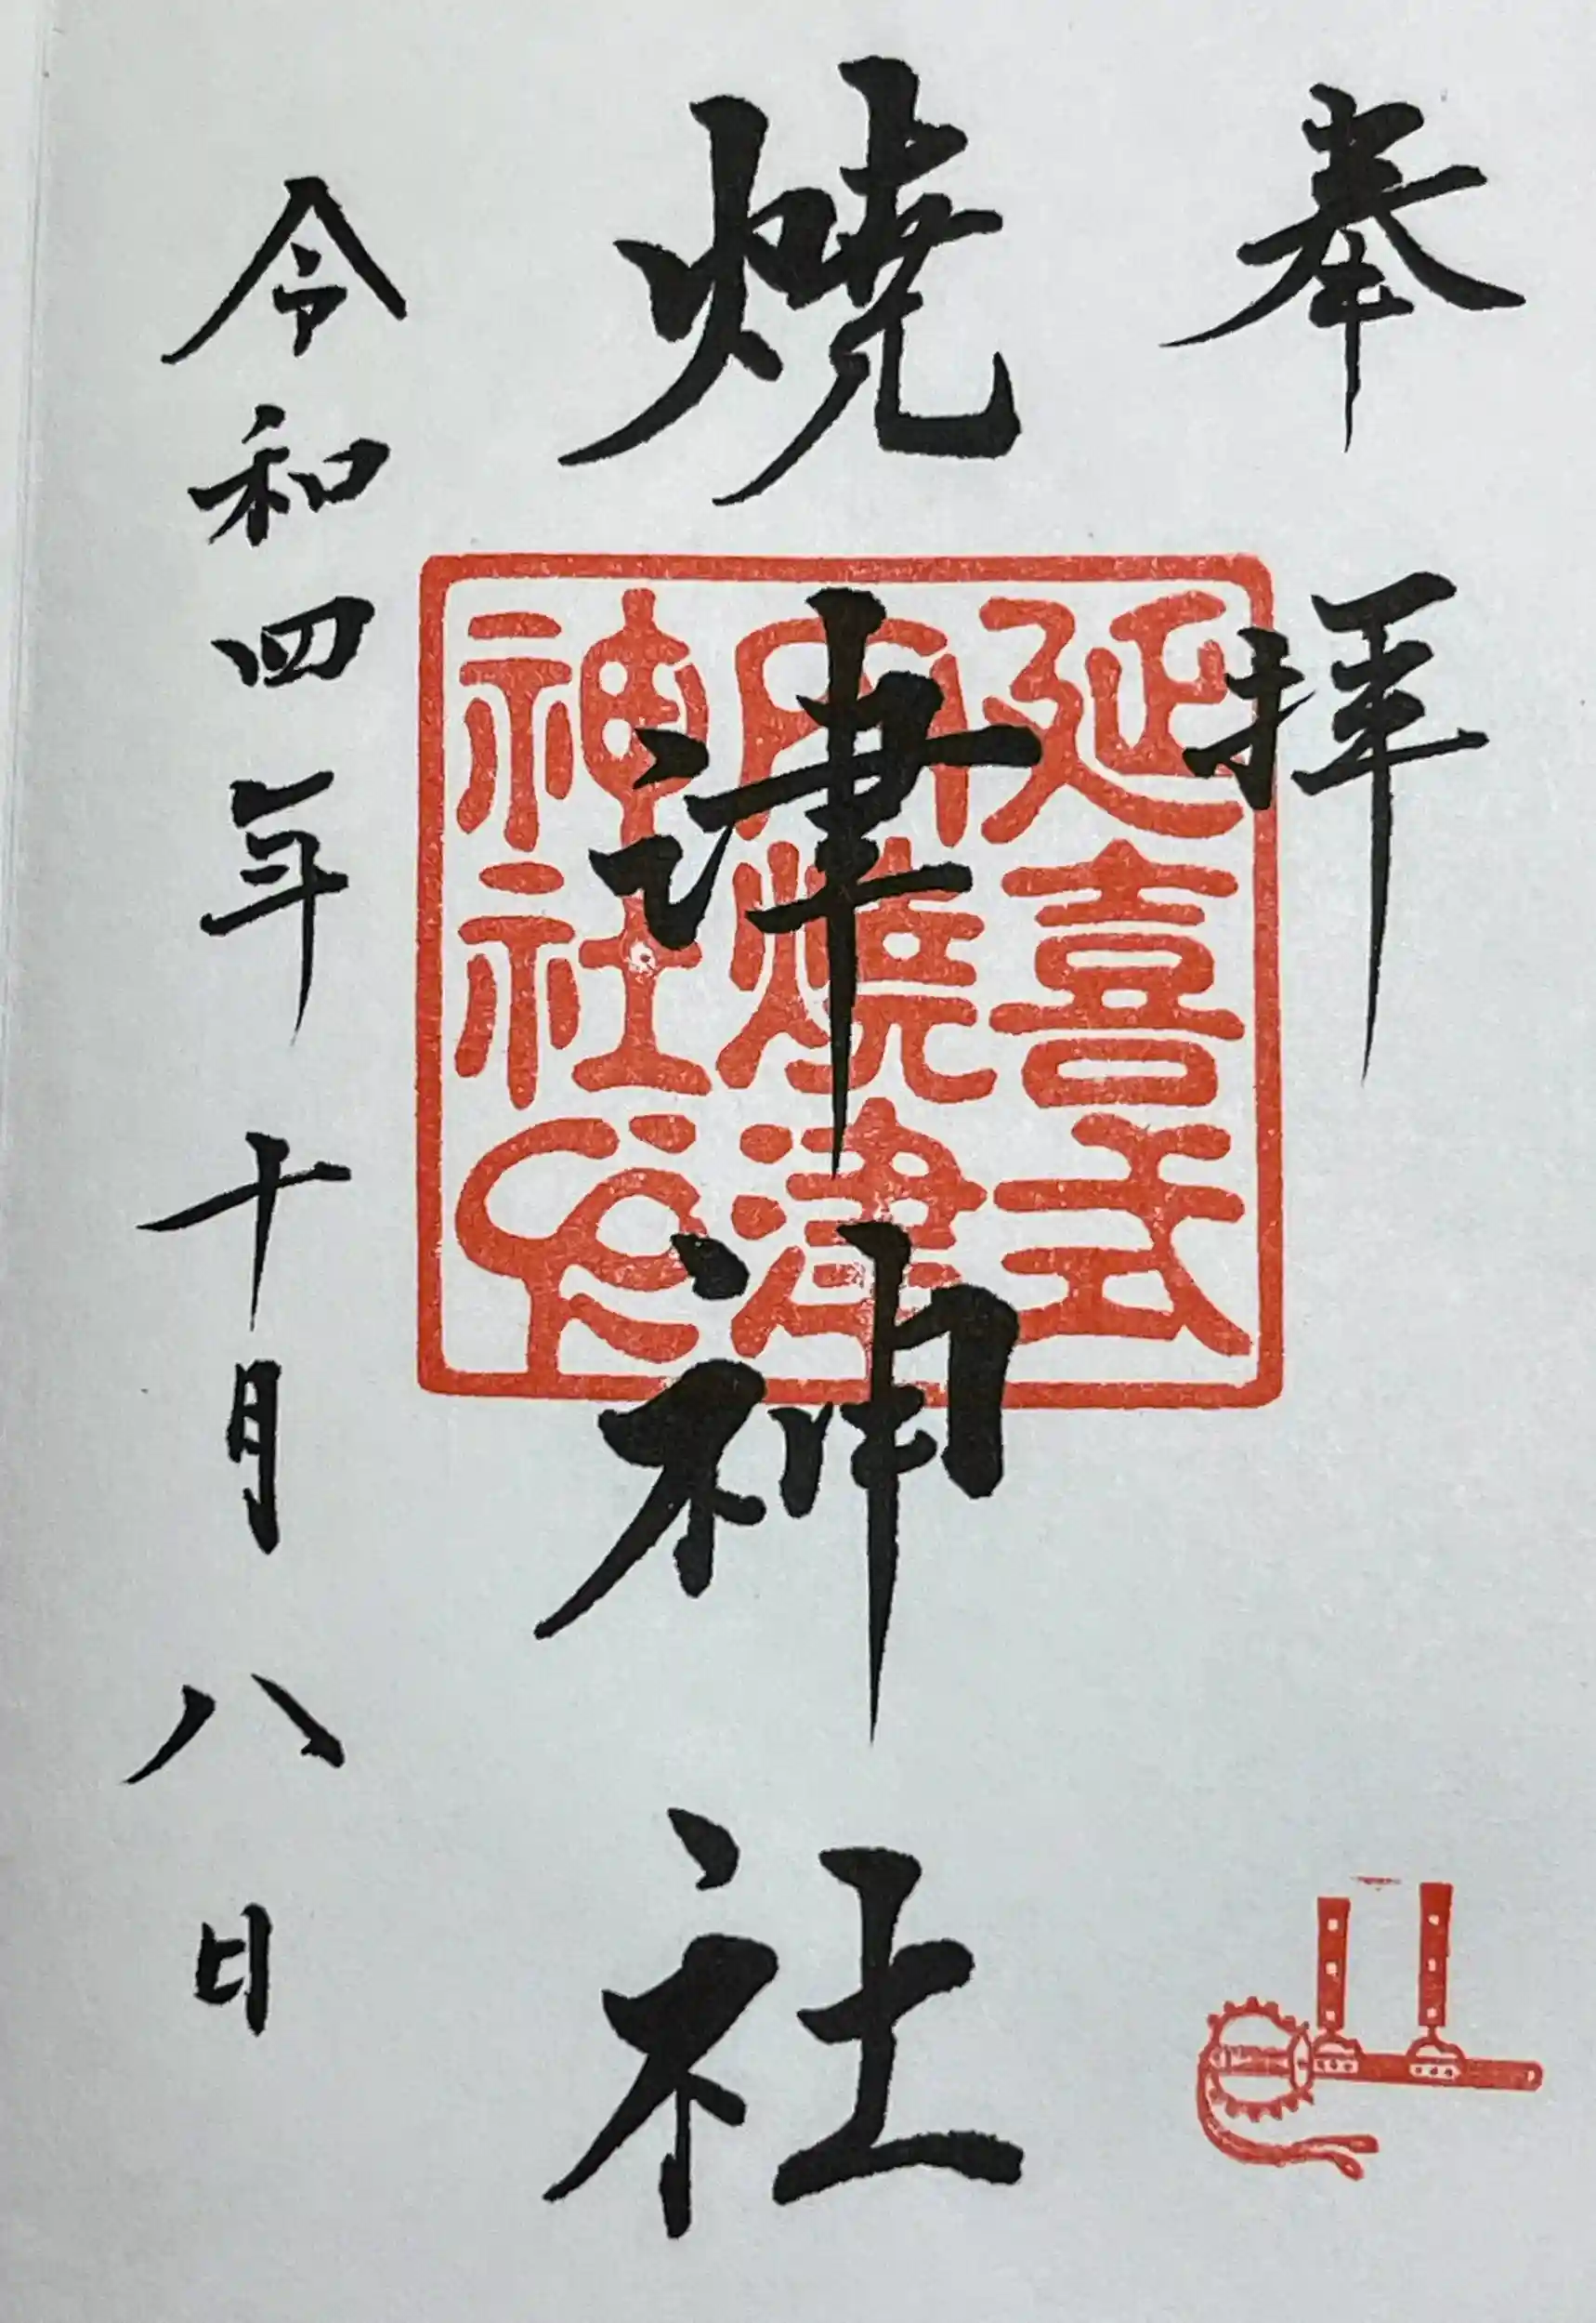 奉拝
焼津神社
延喜式
内焼津
神社印
令和四年十月八日